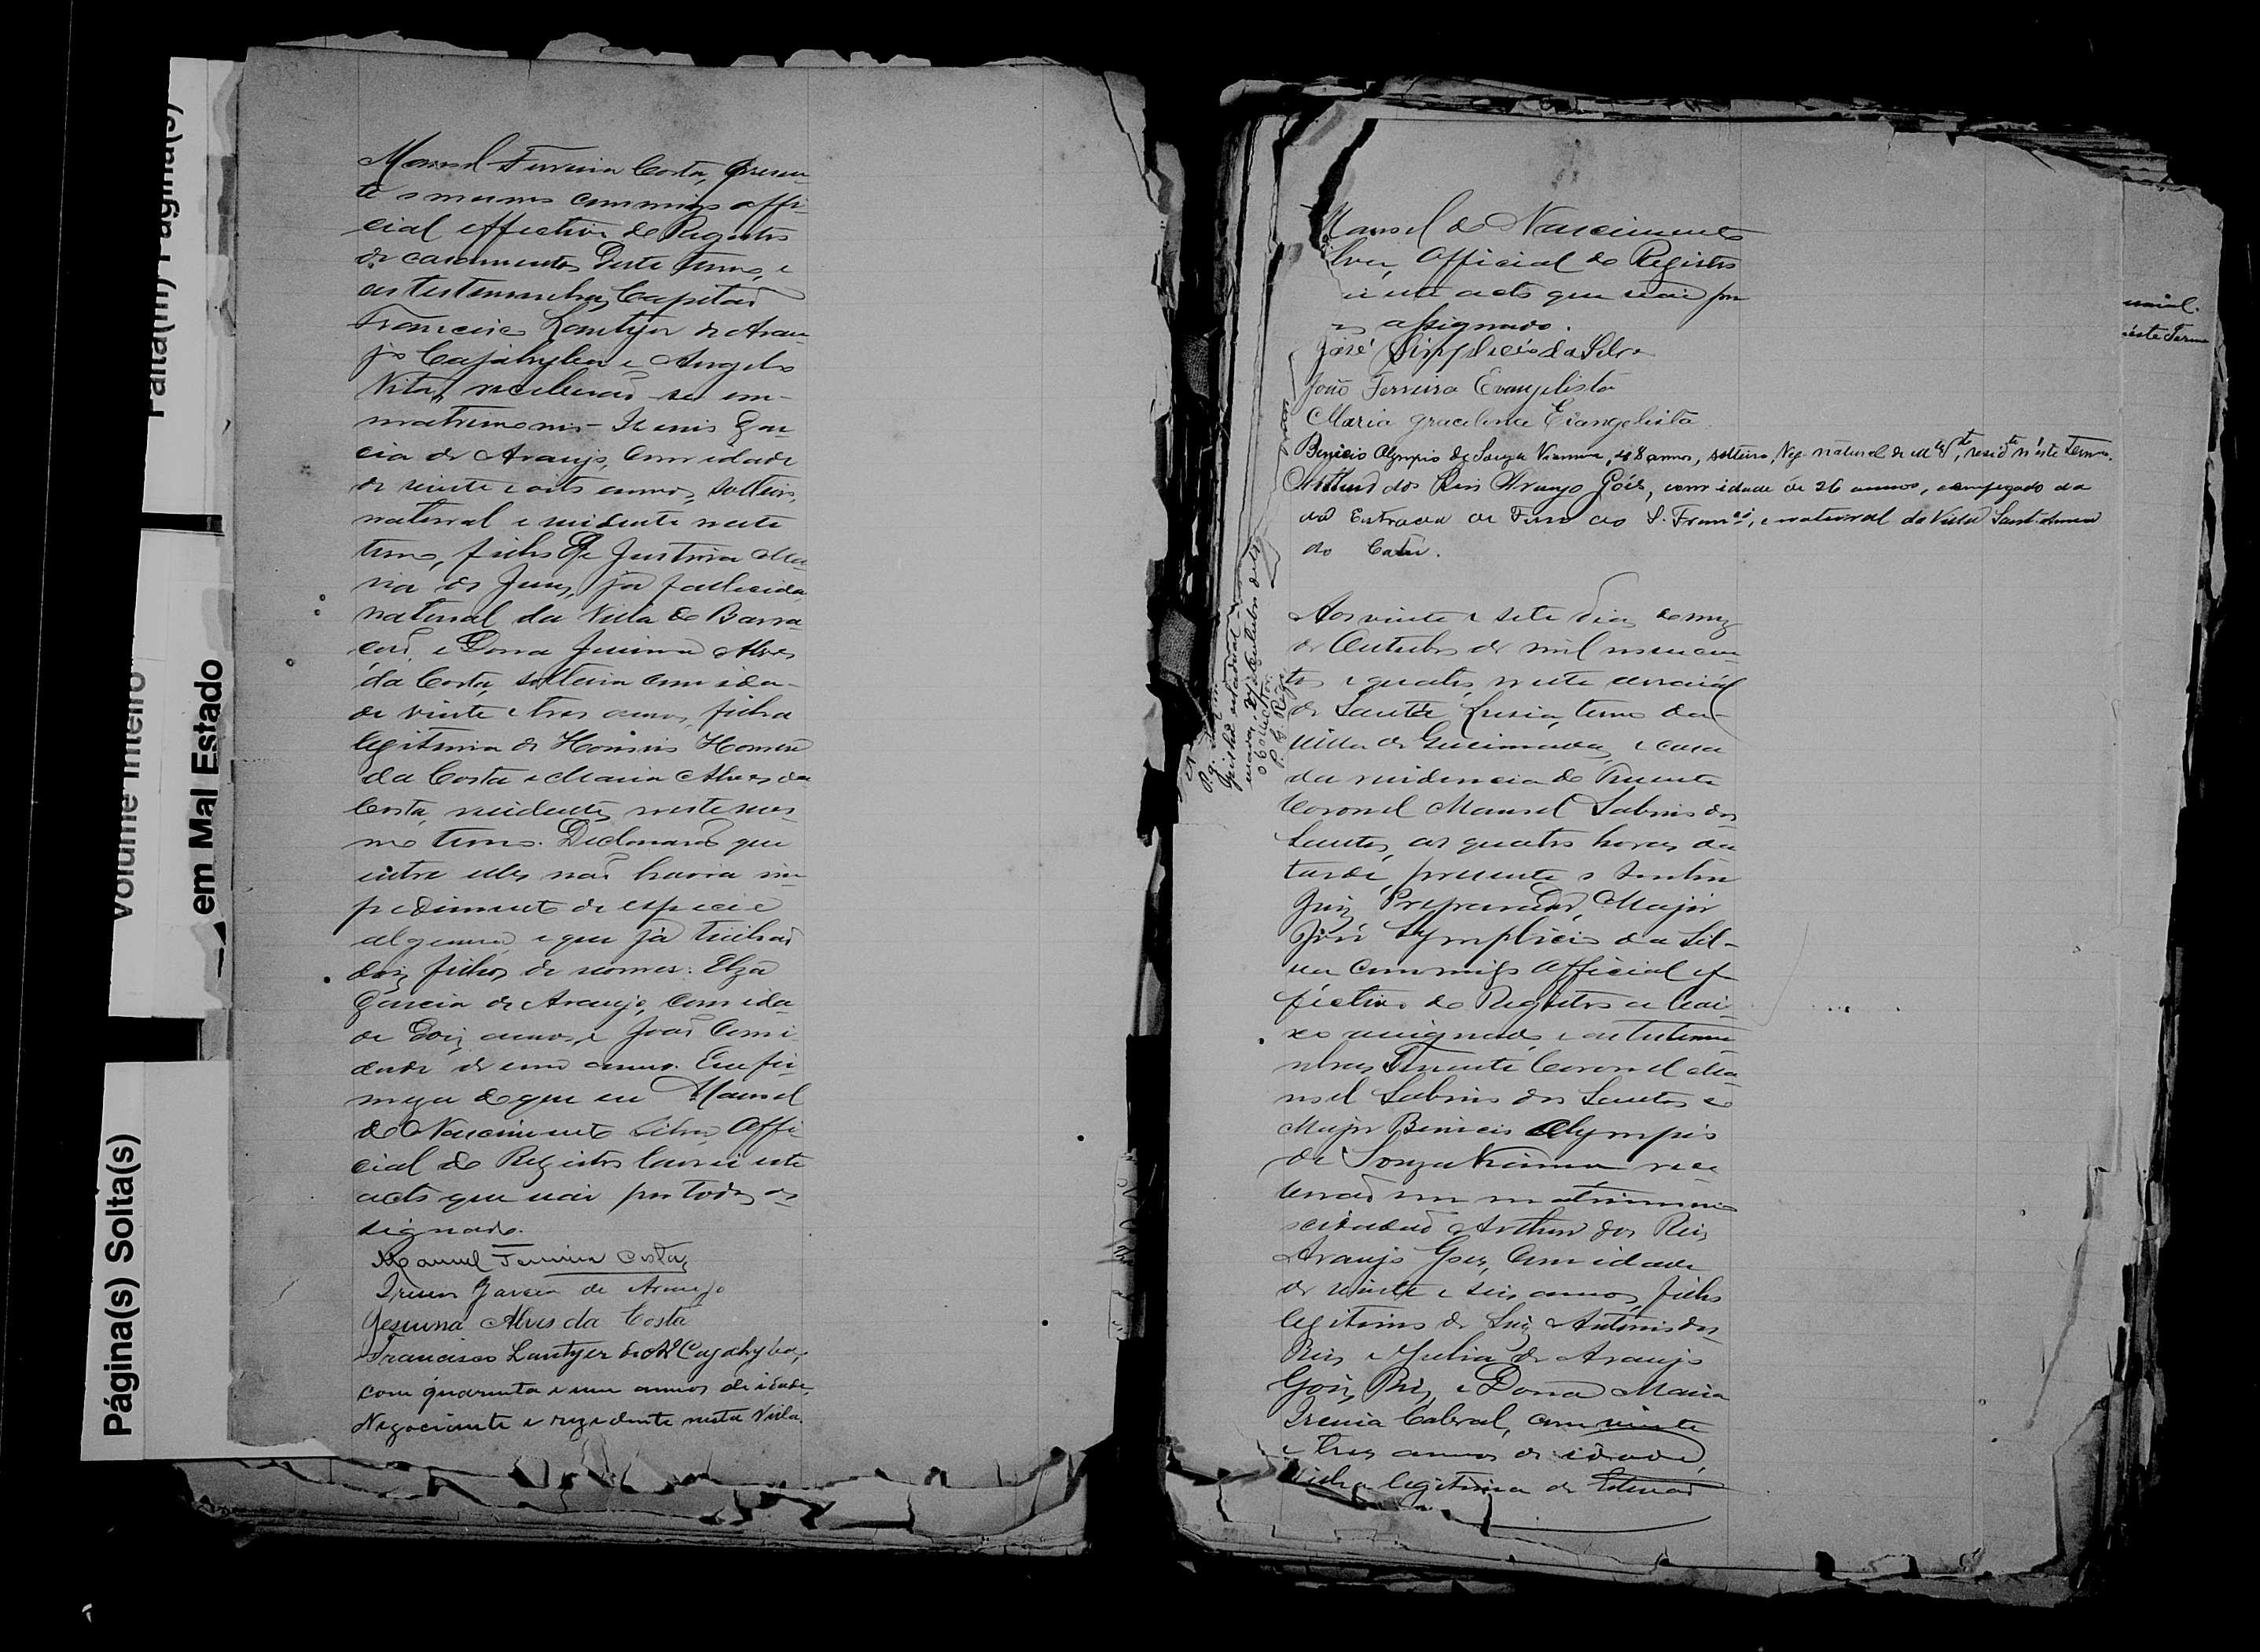 Falta(m) Página(s)
Volume Inteiro
em Mal Estado
Página(s) Solta(s)
Manoel Ferreira Costa, presen-
te o mesmo commigo offi-
cial effectivo do Registro
de casamentos deste termo, e
as testemunhas, Capitão
Francisco Lantyer de Arau-
jo Cajahyba e Angelo
Vita, receberão-se em
matrimonio Irenio Gar-
cia de Araujo, com idade
de vinte e oito annos, solteiro,
natural e residente neste
termo, filho de Justina Ma-
ria de Jesus, já fallecida
natural da Villa de Barra-
cão, e Dona Jesuina Alves
da Costa, solteira com ida-
de vinte e tres annos, filha
legitima de Honorio Homem
da Costa e Maria Alves da
Costa, residentes neste mes-
mo termo. Declararão que
entre elles não havia im-
pedimento de especie
alguma, e que já tinhão
dois filhos de nomes: Elza
Garcia de Araujo, com ida-
de dois annos, e João com i-
dade de um anno. Em fir-
meza do que eu Manoel
do Nascimento Silva, Offi-
cial do Registro lavrei este
acto que vai por todos as-
signado.
Manuel Ferreira Costa
Irenio Garcia de Araujo
Jesuina Alves da Costa
Francisco Lantyer de Ar.º Cajahyba,
com quarenta e um annos de idade,
Negociante e rezidente nesta Villa.
Manoel do Nascimento
Silva, Official do Registro
este acto que vai por
assignado.
José Simplicio da Silva
João Ferreira Evangelista
Maria Evangelista
Benicio Olympio de Souza Vianna, 48 annos, solteiro, Neg. natural de, resid.te n'este Termo.
Arthur dos Reis Araujo Góes, com idade de 26 annos, empregado da
da Estrada de Ferro do S. Franco, e natural da Villa Sant'Anna
do Catu.
Aos vinte e sete dias do mez
de Outubro de mil novecen-
tos e quatro, neste arraial
de Santa Luzia, termo da
Villa de Queimadas, e casa
da residencia do Tenente
Coronel Manoel Sabino dos
Santos, as quatro horas da
tarde, presente o Senhor
Juiz Preparador, Major
José Symplicio da Sil-
va commigo Official ef-
fectivo do Registro abai-
xo assignado, e as testemu-
nhas, Tenente Coronel Ma-
noel Sabino dos Santos e
Major Benicio Olympio
de Souza Vianna rece-
berão em matrimonio
o cidadão Arthur dos Reis
Araujo Goes, com idade
de vinte e seis annos, filho
legitimo de Luiz Antonio dos
Reis e Julia de Araujo
Góis Reis, e Dona Maria
Irenia Cabral, com vinte
e tres annos de idade,
filha legitima de Estevão